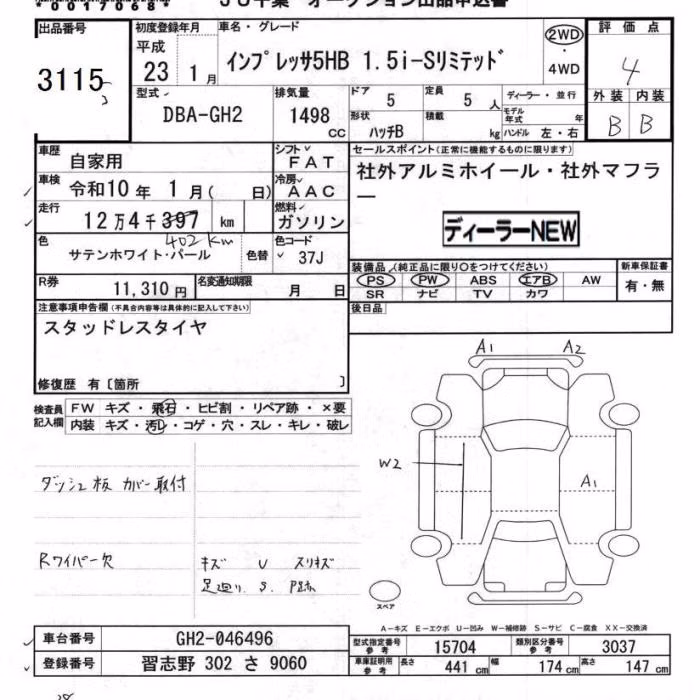 00170687
JU千葉 オークション出品申込書
出品番号
3115
初度登録年月
平成
23 1月
車名・グレード
インプレッサ5HB 1.5i-Sリミテッド
2WD
・
4WD
評価点
4
外装 内装
B B
型式
DBA-GH2
排気量
1498
CC
ドア
5
定員
5 人
ディーラー・並行
形状
ハッチB
積載
kg
モデル年式 年
ハンドル 左・右
車歴
自家用
シフト
FAT
車検
令和10年 1月( 日)
冷房
AAC
走行
12万4千397 km
402km
燃料
ガソリン
色
サテンホワイト・パール
色替
色コード
37J
R券
11,310円
名変通知期限
月 日
セールスポイント(正常に機能するものに限ります)
社外アルミホイール・社外マフラ
ー
ディーラーNEW
装備品 (純正品に限り○をつけてください)
PS PW ABS エアB AW
SR ナビ TV カワ
新車保証書
有・無
後日品
注意事項申告欄(不具合内容等は具体的に記入して下さい)
スタッドレスタイヤ
修復歴 有〔箇所 〕
検査員記入欄
FW キズ・飛石・ヒビ割・リペア跡・×要
内装 キズ・汚レ・コゲ・穴・スレ・キレ・破レ
ダッシュ板 カバー取付
Rワイパー欠
キズ U スリキズ
足廻り S
A1 A2
W2
A1
スペア
A-キズ E-エクボ U-凹み W-補修跡 S-サビ C-腐食 XX-交換済
車台番号
GH2-046496
登録番号
習志野 302 さ 9060
型式指定番号
参考
15704
類別区分番号
参考
3037
車庫証明用
参考
長さ 441 cm
幅 174 cm
高さ 147 cm